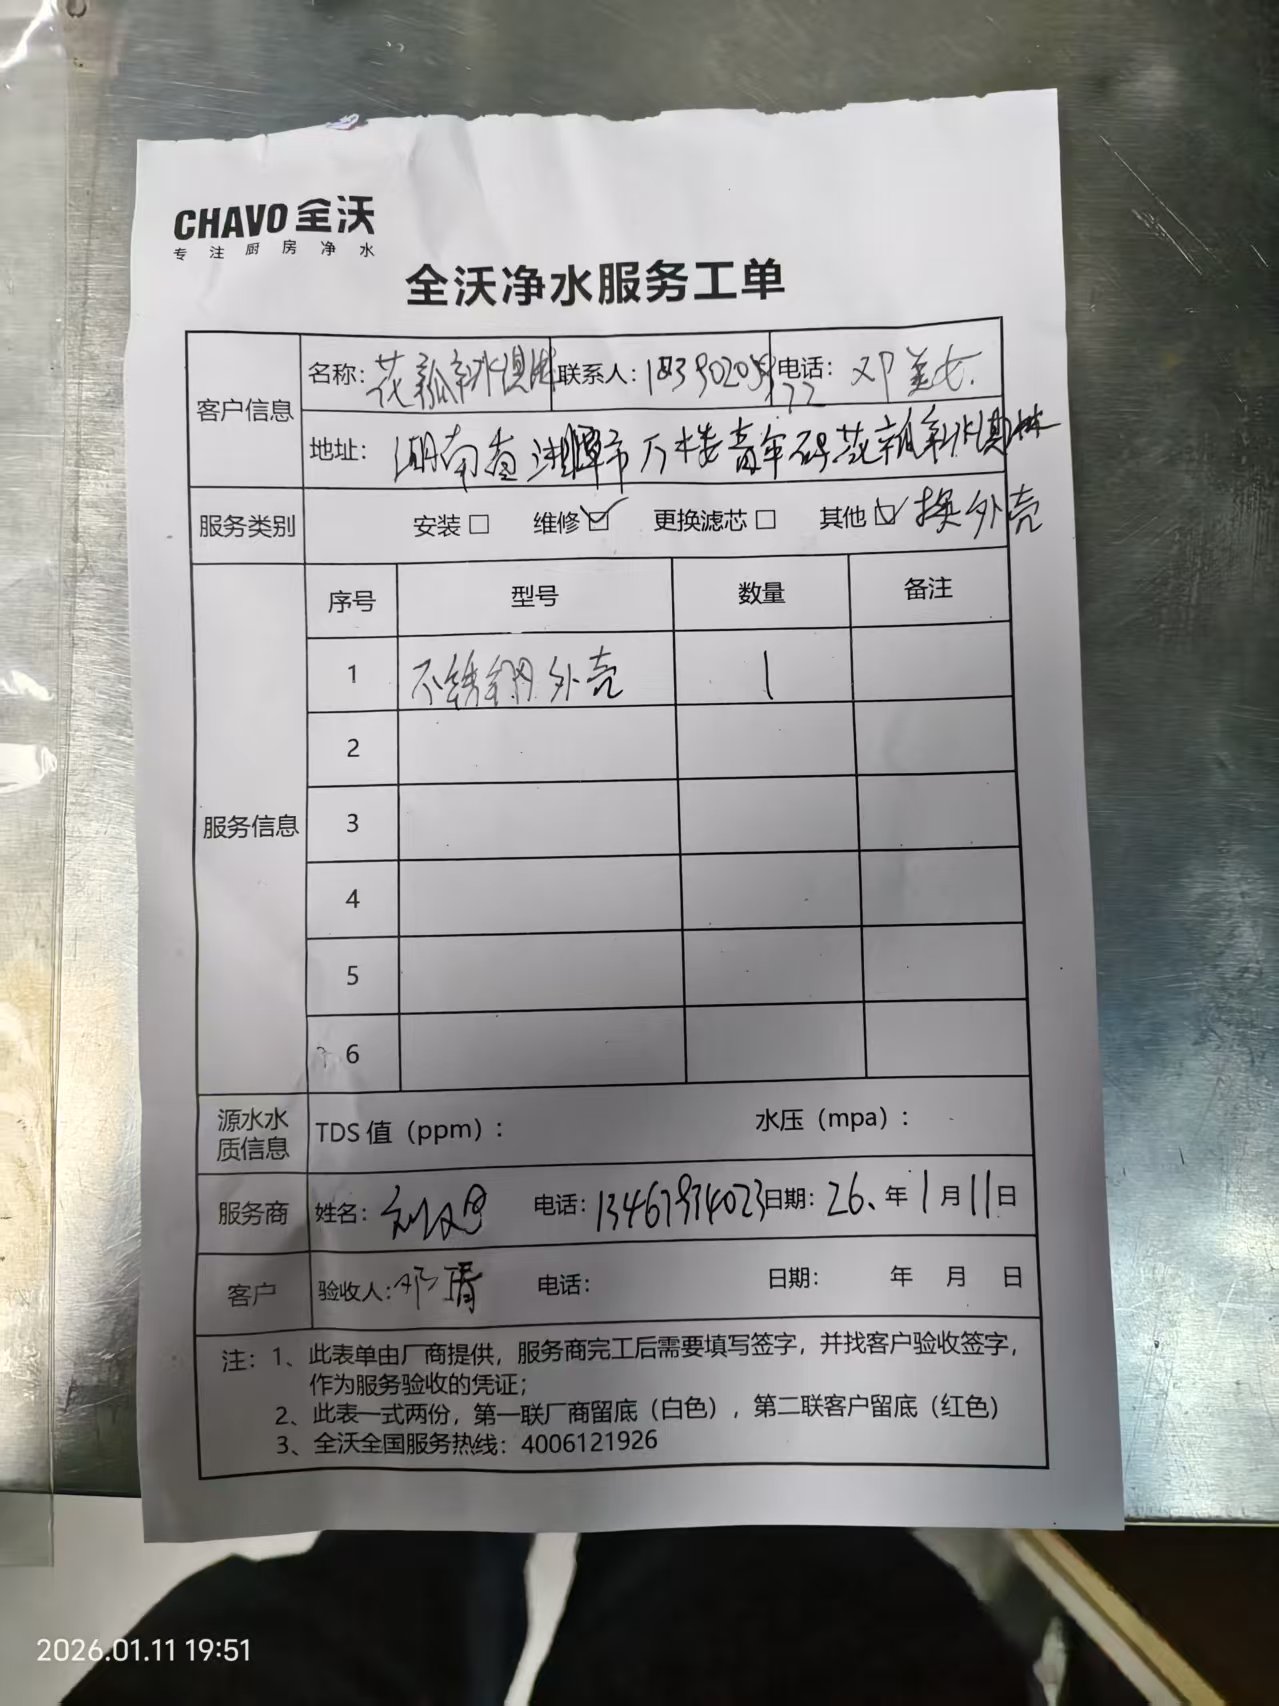 CHAVO 全沃
专注厨房净水
全沃净水服务工单
客户信息 名称：花瓢新冰淇淋 联系人：183902059 电话：邓美女.
77
地址：湖南省湘潭市万楼青年码花瓢新冰淇淋
服务类别 安装□ 维修☑ 更换滤芯□ 其他☑ 换外壳
服务信息 序号 型号 数量 备注
1 不锈钢外壳 1
2
3
4
5
6
源水水质信息 TDS 值（ppm）： 水压（mpa）：
服务商 姓名：刘 电话：13467934023 日期：26、年1月11日
客户 验收人：邓 电话： 日期： 年 月 日
注：1、此表单由厂商提供，服务商完工后需要填写签字，并找客户验收签字，
作为服务验收的凭证；
2、此表一式两份，第一联厂商留底（白色），第二联客户留底（红色）
3、全沃全国服务热线：4006121926
2026.01.11 19:51